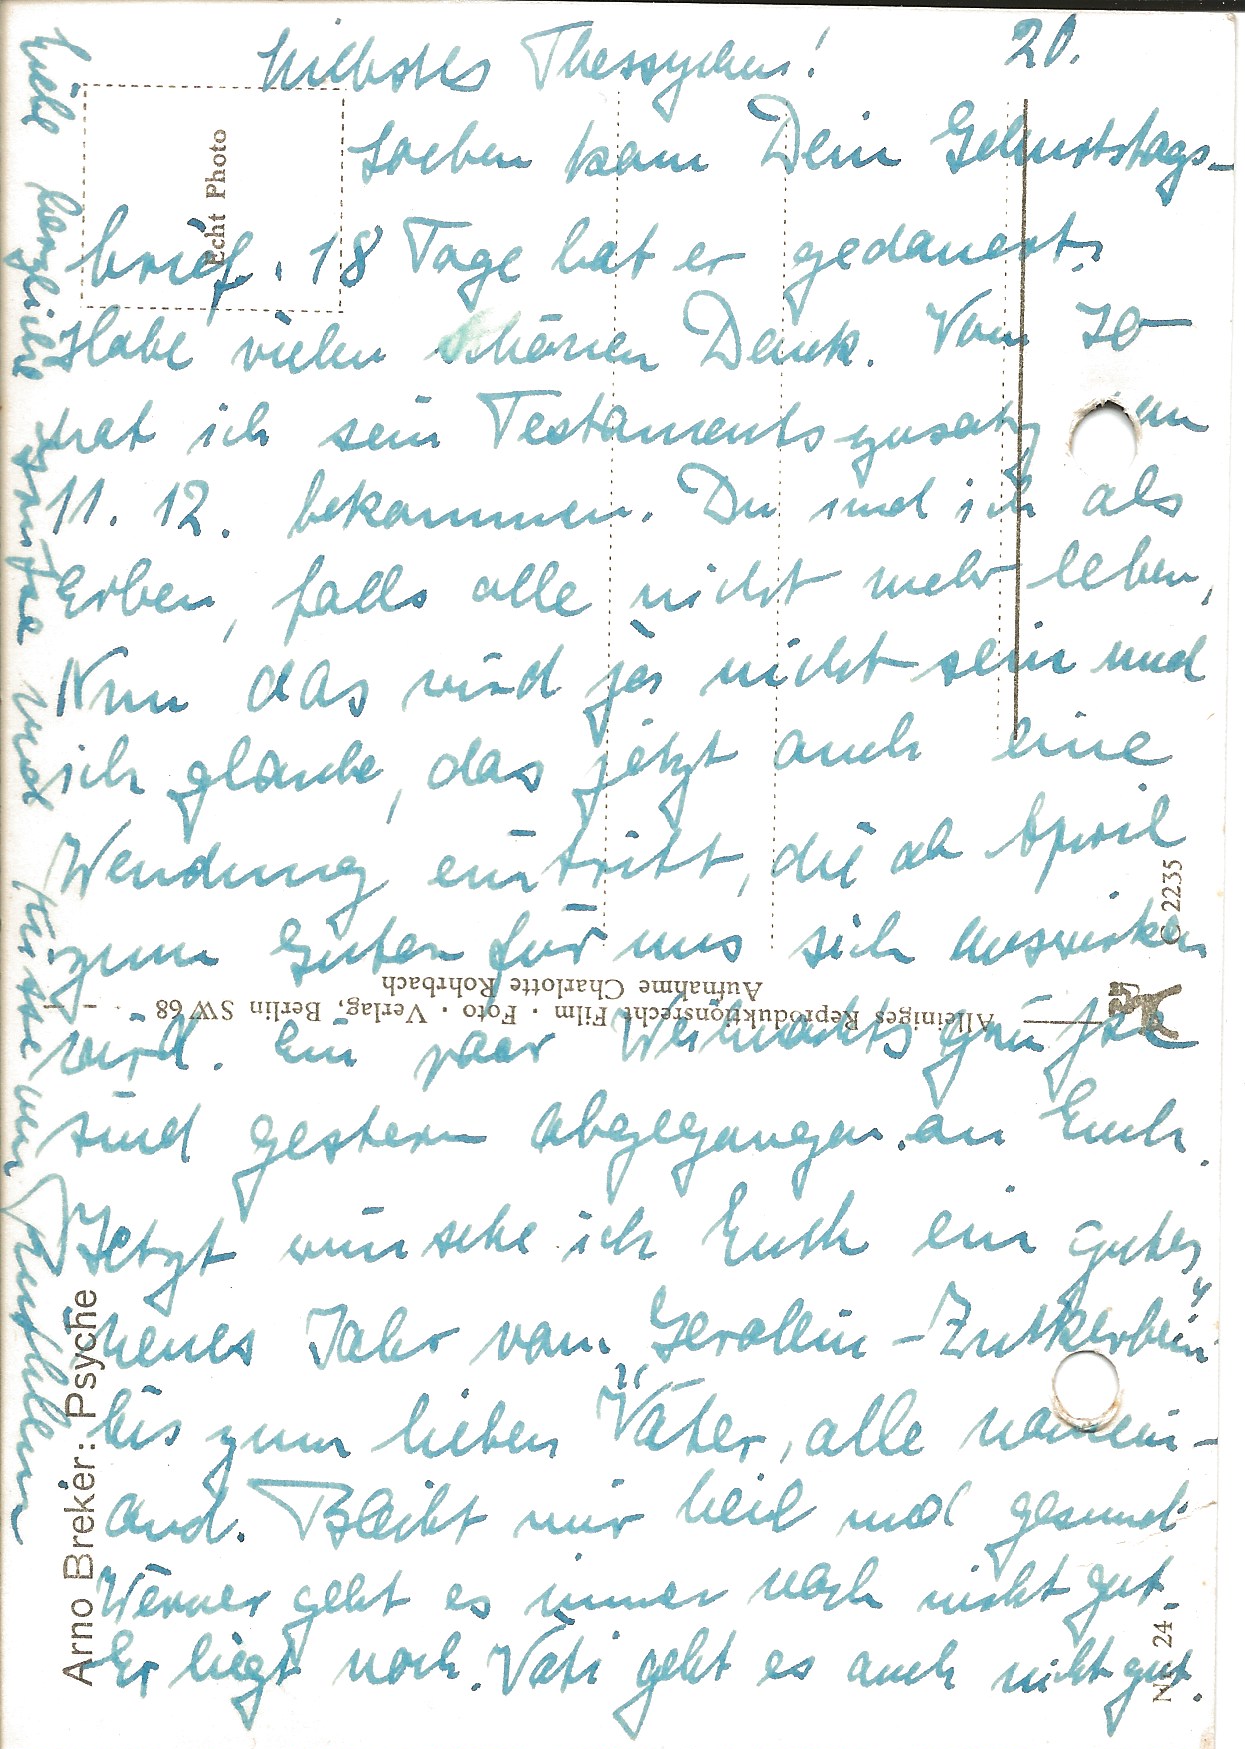 Liebstes Thessychen! 20.
Soeben kam Dein Geburtstags-
brief. 18 Tage hat er gedauert.
Habe vielen schönen Dank. Von JO
hat ich sein Testamentszusatz am
11. 12. bekommen. Du und ich als
Erben, falls alle nicht mehr leben,
Nun das wird ja nicht sein und
ich glaube, das jetzt auch eine
Wendung eintritt, die ab April
zum Guten für uns sich auswirken
wird. Ein paar Weihnachtsgrüsse
sind gestern abgegangen an Euch.
Jetzt wünsche ich Euch ein gutes
neues Jahr vom Geralein-Zuckerbein
bis zum lieben Väter, alle
and. Bleibt mir heil und gesund
Werner geht es immer noch nicht gut.
Er liegt noch. Vati geht es auch nicht gut.
Liebe herzliche Grüsse und Küsse
Echt Photo
Arno Breker: Psyche
Alleiniges Reproduktionsrecht Film-Foto-Verlag, Berlin SW 68
Aufnahme Charlotte Rohrbach
2235
Nr. 24